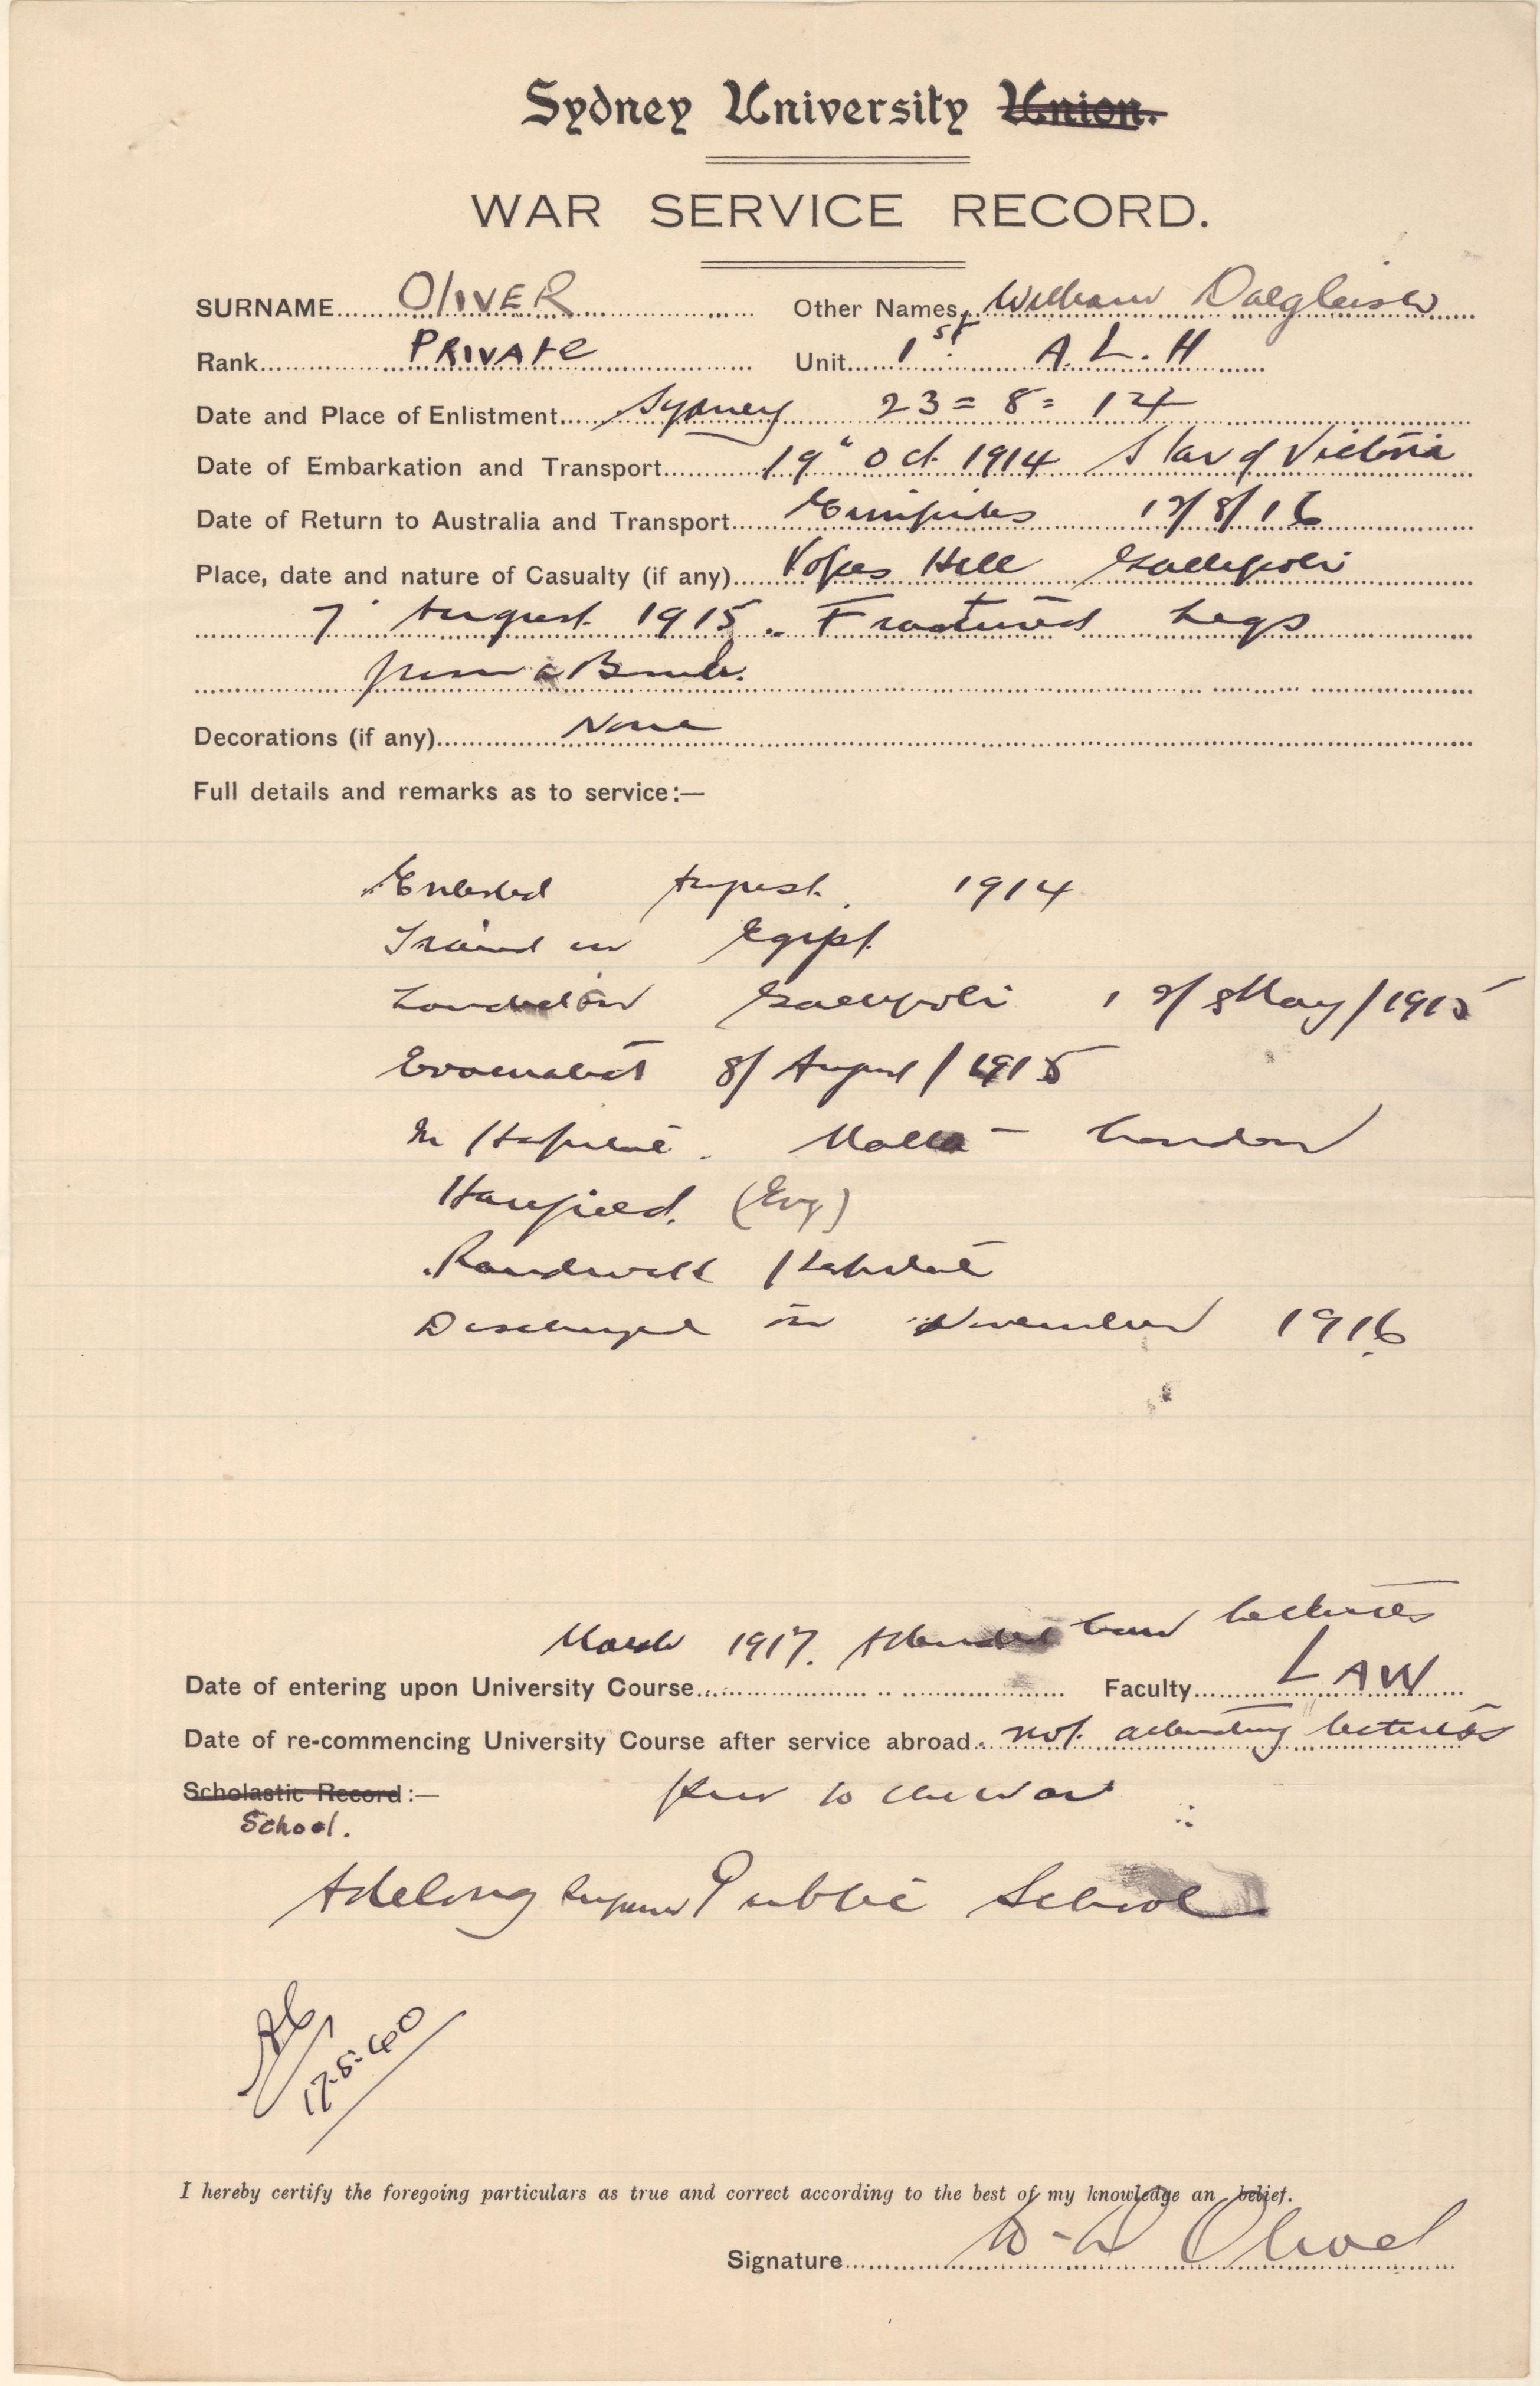 Sydney University Union.
WAR SERVICE RECORD.
SURNAME OLIVER Other Names William Dalgleish
Rank PRIVATE Unit 1st A. L. H
Date and Place of Enlistment Sydney 23 = 8 = 14
Date of Embarkation and Transport 19" Oct 1914 Star of Victoria
Date of Return to Australia and Transport Euripides /8/16
Place, date and nature of Casualty (if any) Popes Hill Gallipoli
7 August 1915. Fractured Legs
from a Bomb.
Decorations (if any) None
Full details and remarks as to service:—
Enlisted August. 1914
Trained in Egypt
Landed on Gallipoli May/1915
Evacuated 8/August/1915
In Hospital. Malta - London
Harefield. (Eng)
Randwick Hospital
Discharged in November 1916
March 1917. Attended Law Lectures
Date of entering upon University Course Faculty LAW
Date of re-commencing University Course after service abroad. not attending lectures
Scholastic Record:— prior to the war
School.
Adelong Superior Public School
17.5.40
I hereby certify the foregoing particulars as true and correct according to the best of my knowledge an belief.
Signature W-D Oliver